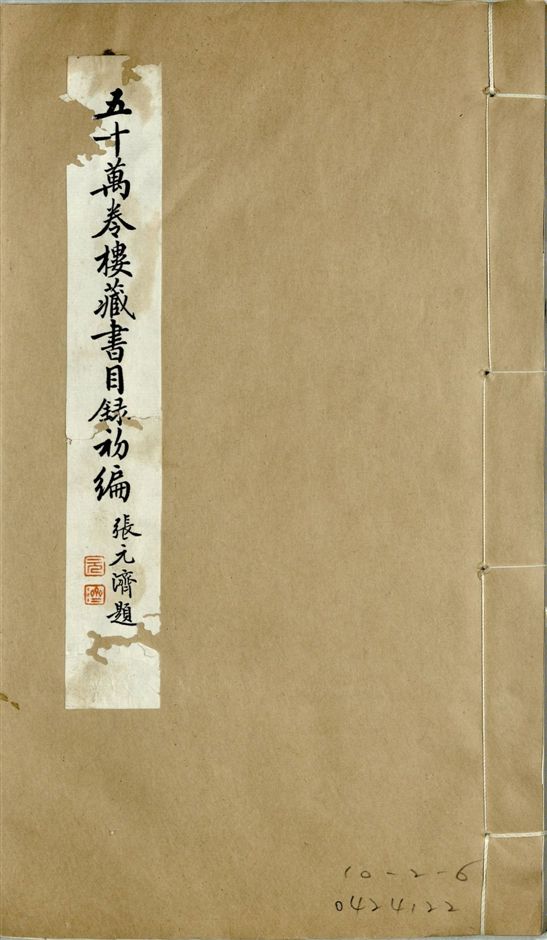 五十萬卷樓藏書目録初編
張元濟題
元
濟
10-2-6
0424122